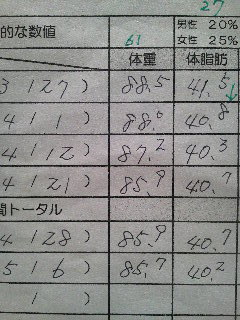 27
的な数値 男性 20%
61 女性 25%
体重 体脂肪
3 / 27 ) 88.5 41.5 ↓
4 / 1 ) 88.0 40.8
4 / 12 ) 87.2 40.3
4 / 21 ) 85.9 40.7
間トータル
4 / 28 ) 85.9 40.7
5 / 6 ) 85.7 40.2
/ )